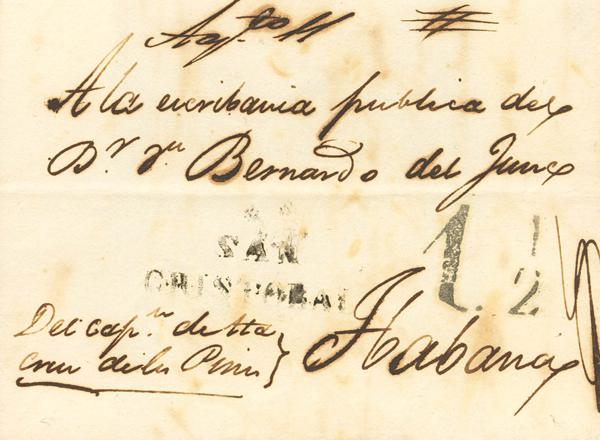 Agto 11
A la escribania publica del
Dr. Dn Bernardo del Junco
SAN
CRISTOBAL
1. 1/2
Del capn. de Sta
Cruz de los Pinos
Habana